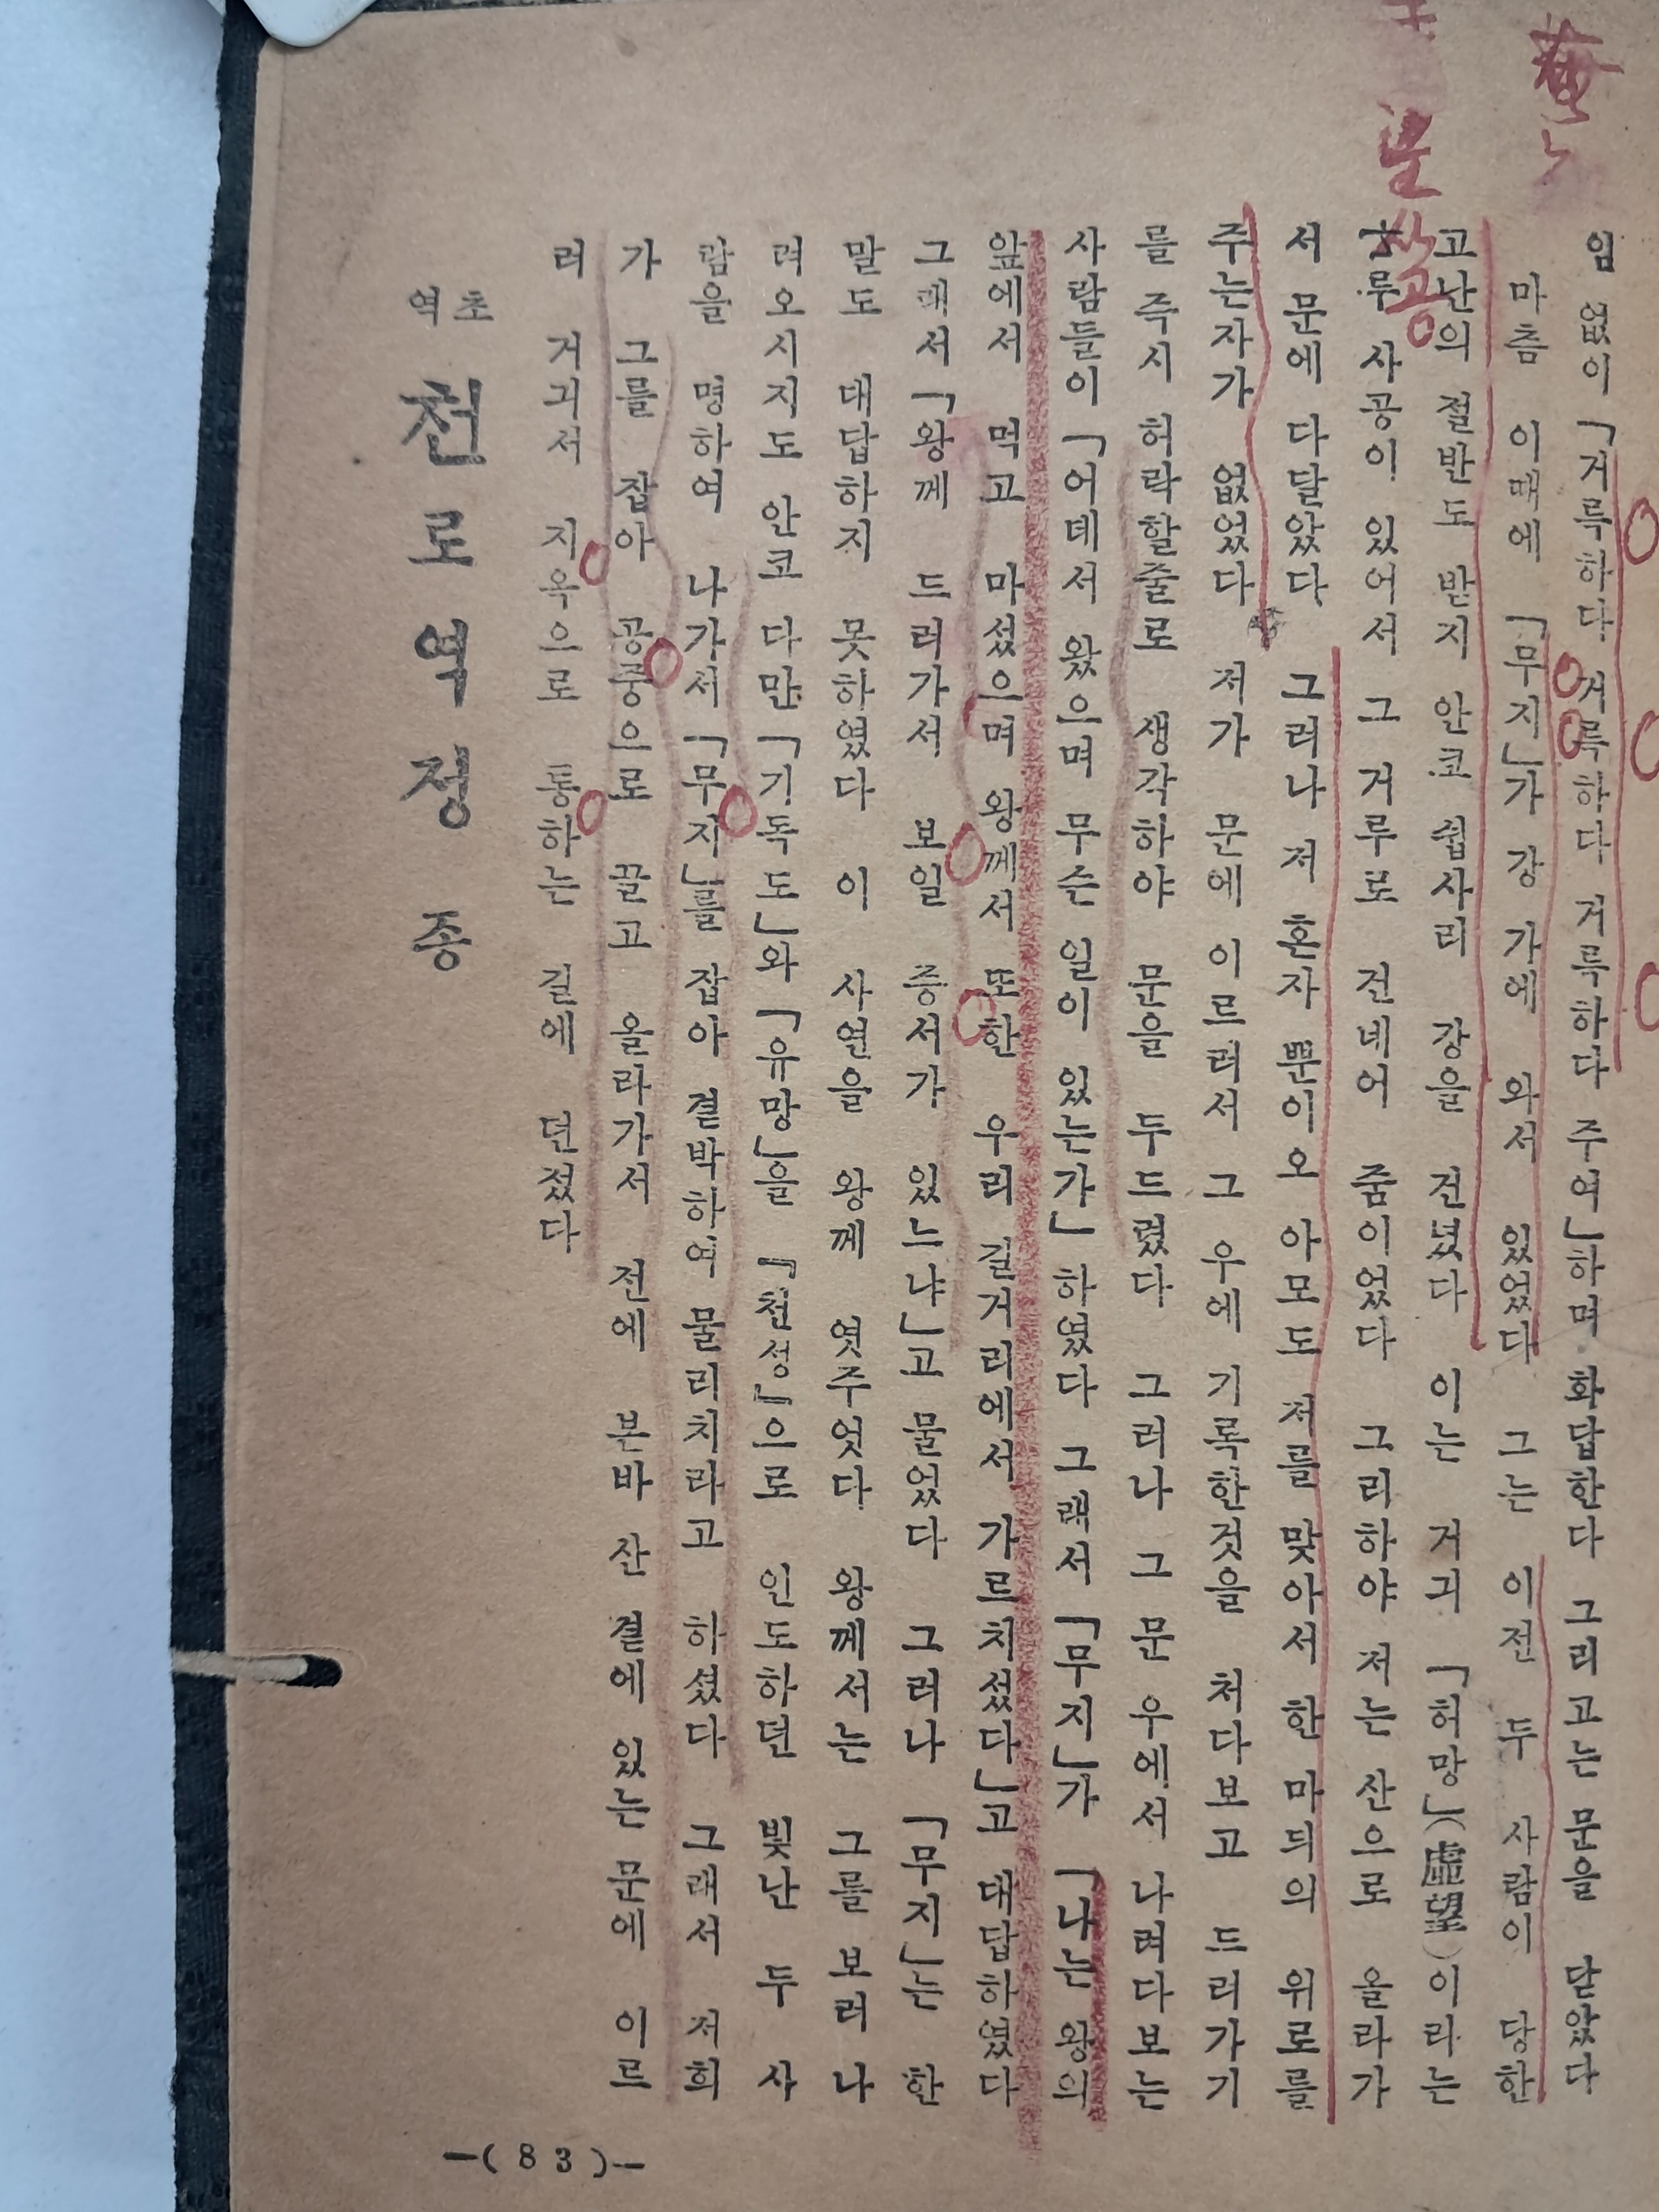 임 없이 「거륵하다 거륵하다 거륵하다 주여」하며 화답한다 그리고는 문을 닫았다
마츰 이때에 「무지」가 강 가에 와서 있었다 그는 이전 두 사람이 당한
고난의 절반도 받지 안코 쉽사리 강을 건넜다 이는 거긔 「허망」(虛望)이라는
루 사공이 있어서 그 거루로 건네어 줌이었다 그리하야 저는 산으로 올라가
서 문에 다달았다 그러나 저 혼자 뿐이오 아모도 저를 맞아서 한 마듸의 위로를
주는자가 없었다 저가 문에 이르러서 그 우에 기록한것을 처다보고 드러가기
를 즉시 허락할줄로 생각하야 문을 두드렸다 그러나 그 문 우에서 나려다보는
사람들이 「어데서 왔으며 무슨 일이 있는가」하였다 그래서 「무지」가 「나는 왕의
앞에서 먹고 마셨으며 왕께서 또한 우리 길거리에서 가르치셨다」고 대답하였다
그래서 「왕께 드러가서 보일 증서가 있느냐」고 물었다 그러나 「무지」는 한
말도 대답하지 못하였다 이 사연을 왕께 엿주엇다 왕께서는 그를 보러 나
려오시지도 안코 다만 「기독도」와 「유망」을 「천성」으로 인도하던 빛난 두 사
람을 명하여 나가서 「무지」를 잡아 결박하여 물리치라고 하셨다 그래서 저희
가 그를 잡아 공중으로 끌고 올라가서 전에 본바 산 곁에 있는 문에 이르
러 거긔서 지옥으로 통하는 길에 던젔다
초역 천로역정 종
—(83)—
망
사공